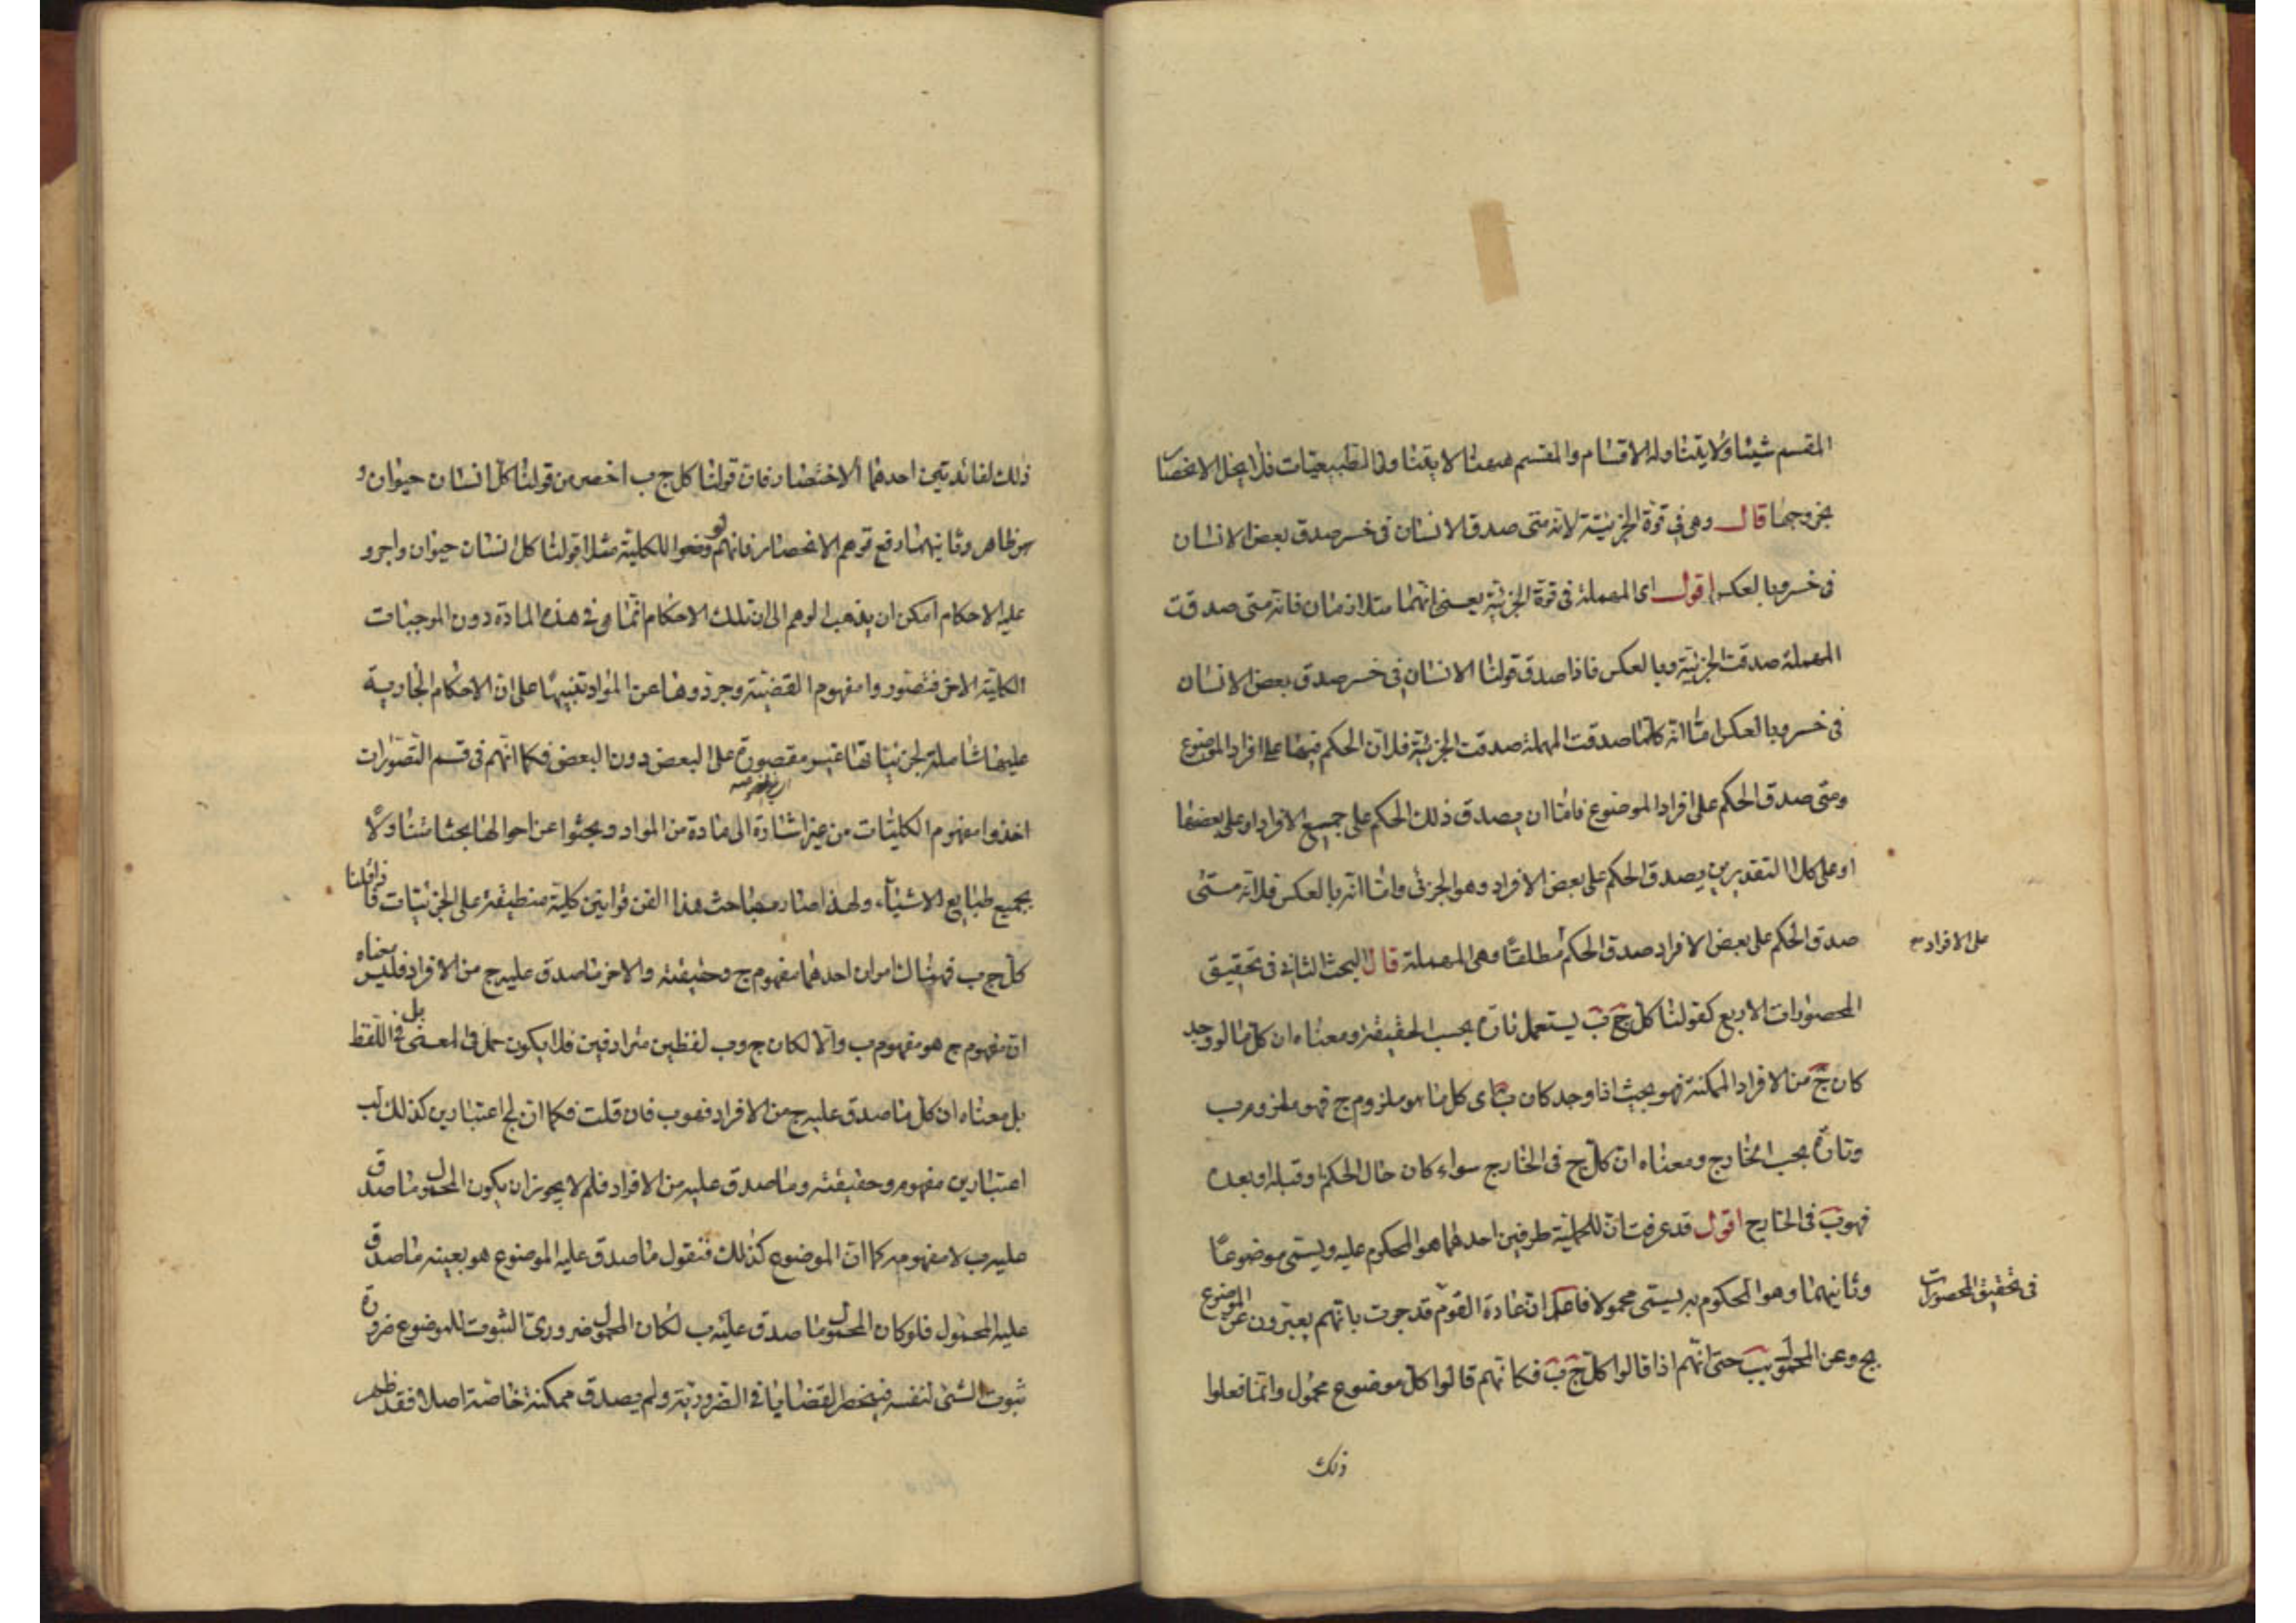 المقسم شيئا ولا يتناوله الاقسام والمقسم ههنا لا يتناول الطبيعيات فلا يخل الانحصار
بخروجها قال وهي في قوة الجزئية لانه متى صدق الانسان في خسر صدق بعض الانسان
في خسر وبالعكس اقول اى المهملة في قوة الجزئية يعنى انهما متلازمان فانه متى صدقت
المهملة صدقت الجزئية وبالعكس فاذا صدق قولنا الانسان في خسر صدق بعض الانسان
في خسر وبالعكس امّا انّه كلّما صدقت المهملة صدقت الجزئية فلان الحكم فيها على افراد الموضوع
ومتى صدق الحكم على افراد الموضوع فامّا ان يصدق ذلك الحكم على جميع الافراد او على بعضها
او على كلا التقديرين يصدق الحكم على بعض الافراد وهو الجزئى وامّا انّه بالعكس فلانّه متى
صدق الحكم على بعض الافراد صدق الحكم مطلقًا وهى المهملة قال البحث الثانى فى تحقيق
على الافراد
المحصورات الاربع كقولنا كل ج ب يستعمل تارة بحسب الحقيقة ومعناه ان كل ما لو وجد
كان ج من الافراد الممكنة فهو بحيث اذا وجد كان ب اى كل ما هو ملزوم ج فهو ملزوم ب
وتارة بحسب الخارج ومعناه ان كل ج فى الخارج سواء كان حال الحكم او قبله او بعده
فهو ب فى الخارج اقول قد عرفت انّ للحملية طرفين احدهما هو المحكوم عليه ويسمّى موضوعًا
وثانيهما وهو المحكوم به يسمّى محمولا فاعلم ان عادة القوم قد جرت بانّهم يعبّرون عن الموضوع
فى تحقيق المحصورات
بج وعن المحمول بب حتى انّهم اذا قالوا كل ج ب فكانّهم قالوا كل موضوع محمول وانّما فعلوا
ذلك
ذلك لفائدتين احدهما الاختصار فان قولنا كل ج ب اخصر من قولنا كل انسان حيوان و
هو ظاهر وثانيهما دفع توهم الانحصار فانهم لو وضعوا للكلية مثلا قولنا كل انسان حيوان واجرو
عليه الاحكام امكن ان يذهب الوهم الى ان تلك الاحكام انّما هى فى هذه المادة دون الموجبات
الكلية الاخر فتصوروا مفهوم القضية وجرّدوها عن المواد تنبيهًا على ان الاحكام الجارية
عليها شاملة لجزئياتها غير مقصورة على البعض دون البعض فكما انّهم فى قسم التصوّرات
اخذوا مفهوم الكليّات من غير اشارة الى مادة من المواد وبحثوا عن احوالها بحثا متناولًا
بجميع طبايع الاشياء ولهذا صار مباحث هذا الفن قوانين كلية منطبقة على الجزئيّات فاذا قلنا
كل ج ب فهنا لنا امران احدهما مفهوم ج وحقيقته والاخر ما صدق عليه ج من الافراد فليس معناه
ان مفهوم ج هو مفهوم ب والّا لكان ج وب لفظين مترادفين فلا يكون حمل فى المعنى بل فى اللّفظ
بل معناه ان كل ما صدق عليه ج من الافراد فهو ب فان قلت فكما ان لج اعتبارين كذلك لب
اعتبارين مفهومه وحقيقته وما صدق عليه من الافراد فلم لا يجوز ان يكون المحمول ما صدق
عليه ب لا مفهومه كما ان الموضوع كذلك فنقول ما صدق عليه الموضوع هو بعينه ما صدق
عليه المحمول فلو كان المحمول ما صدق عليه ب لكان المحمول ضرورىّ الثبوت للموضوع ضرورة
ثبوت الشئ لنفسه فينحصر القضايا فى الضرورية ولم يصدق ممكنة خاصّة اصلا فقد ظهر